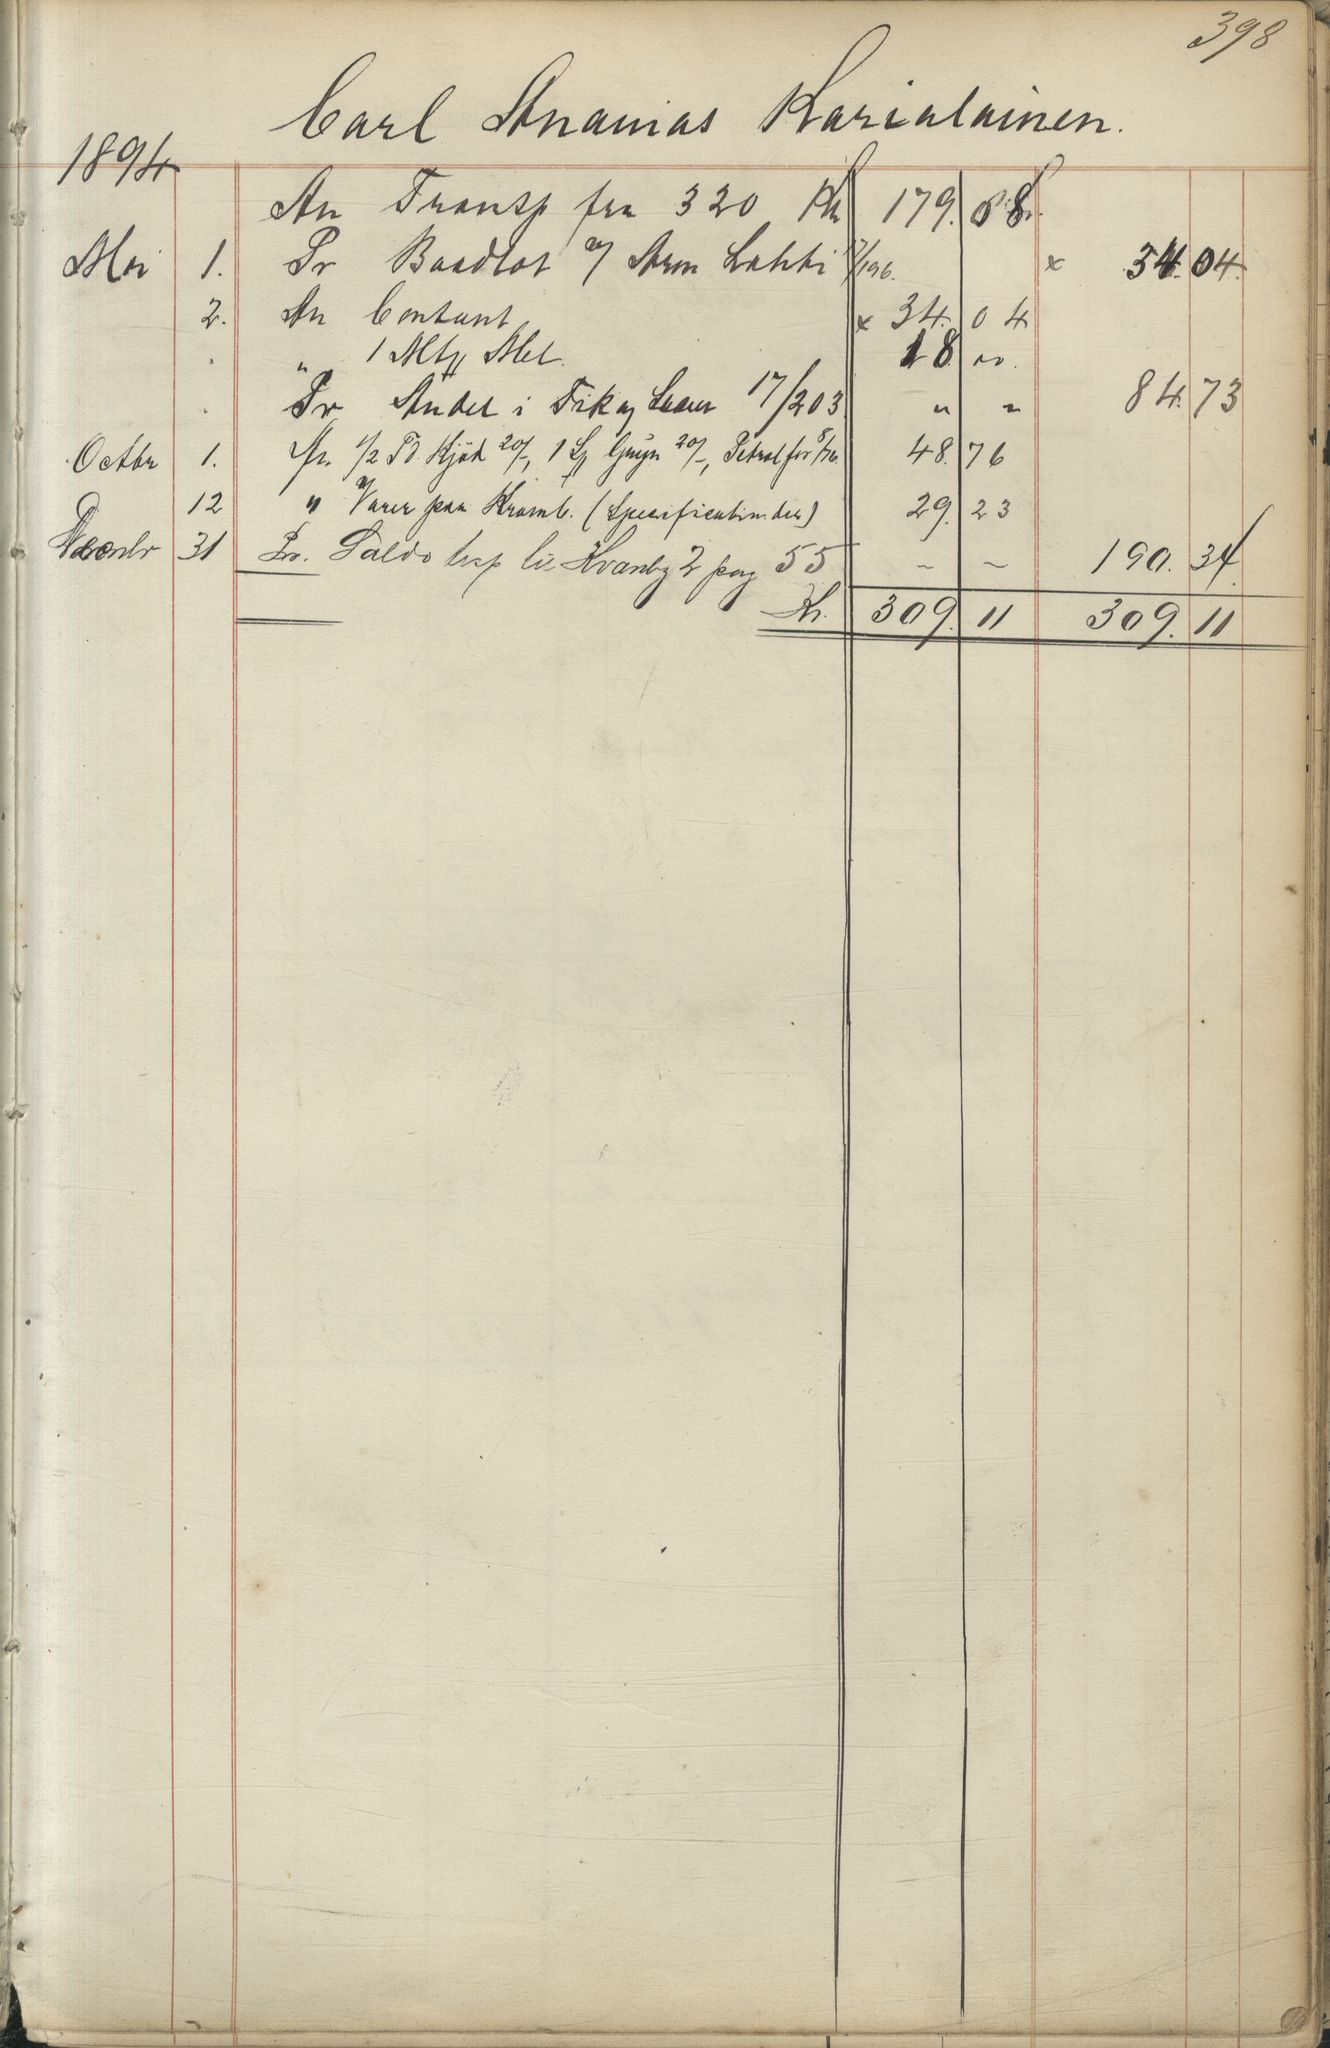 398
Carl Ananias Karialainen.
1894
An Transp fra 320 Kr 179. 08.
Mai 1. Pr Baadlot m/ Aron Lahti 17/196. x 34. 04.
2. An Contant x 34. 04
" 1 Mtt Mel. 18 "".
Pr. Andel i Fisk og Laxer 17/203 " " 84. 73
Octbr 1. An. 1/2 Td. Kjød 20/-, 1 Gryn 20/-, Petrol for 8/76. 48. 76
12 " Varer paa Kramb. (Specification) 29. 23
Decenbr 31 Pr. Saldo trsp til Kvanby 2 pag 55 – – 190. 34.
Kr. 309. 11 309. 11